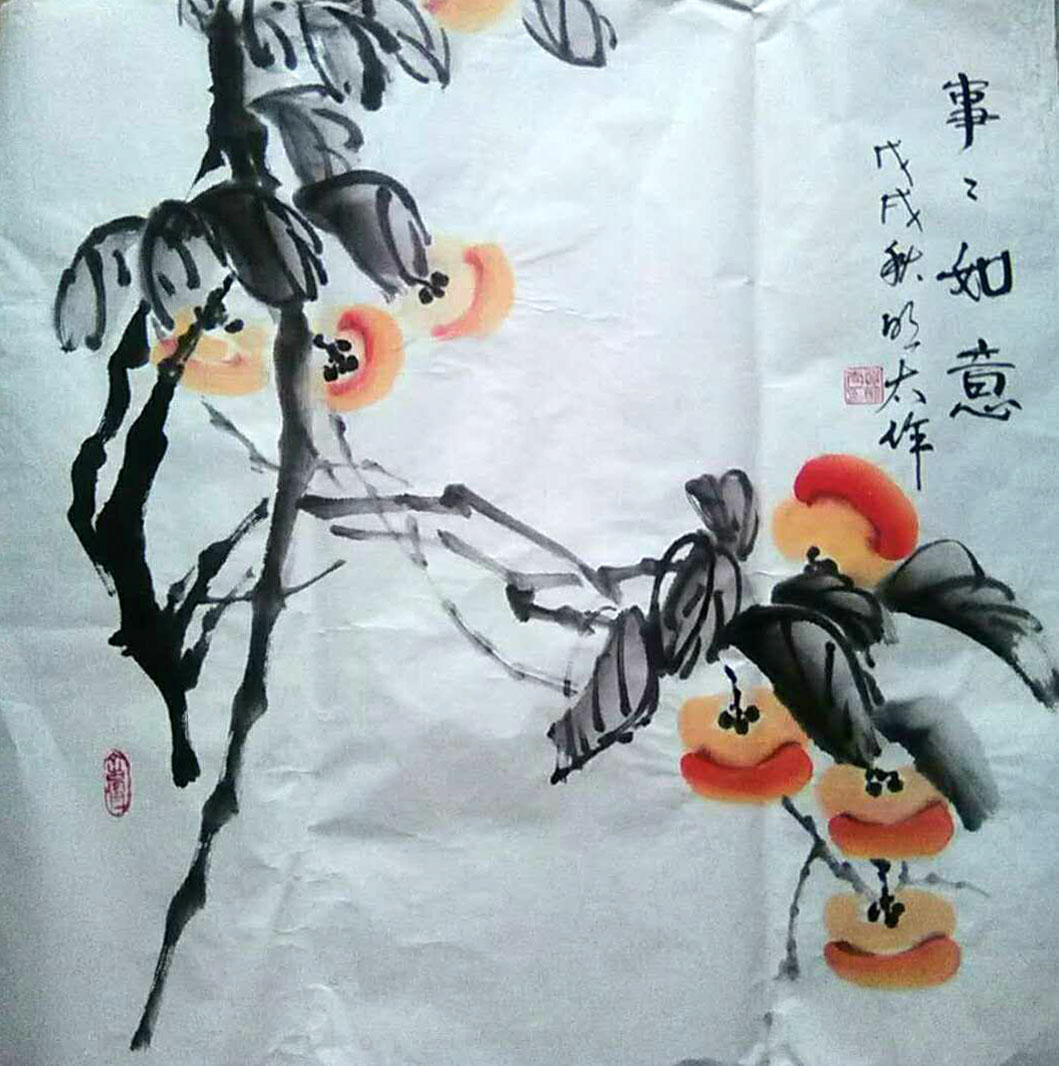 事〻如意
戊戌秋明太作